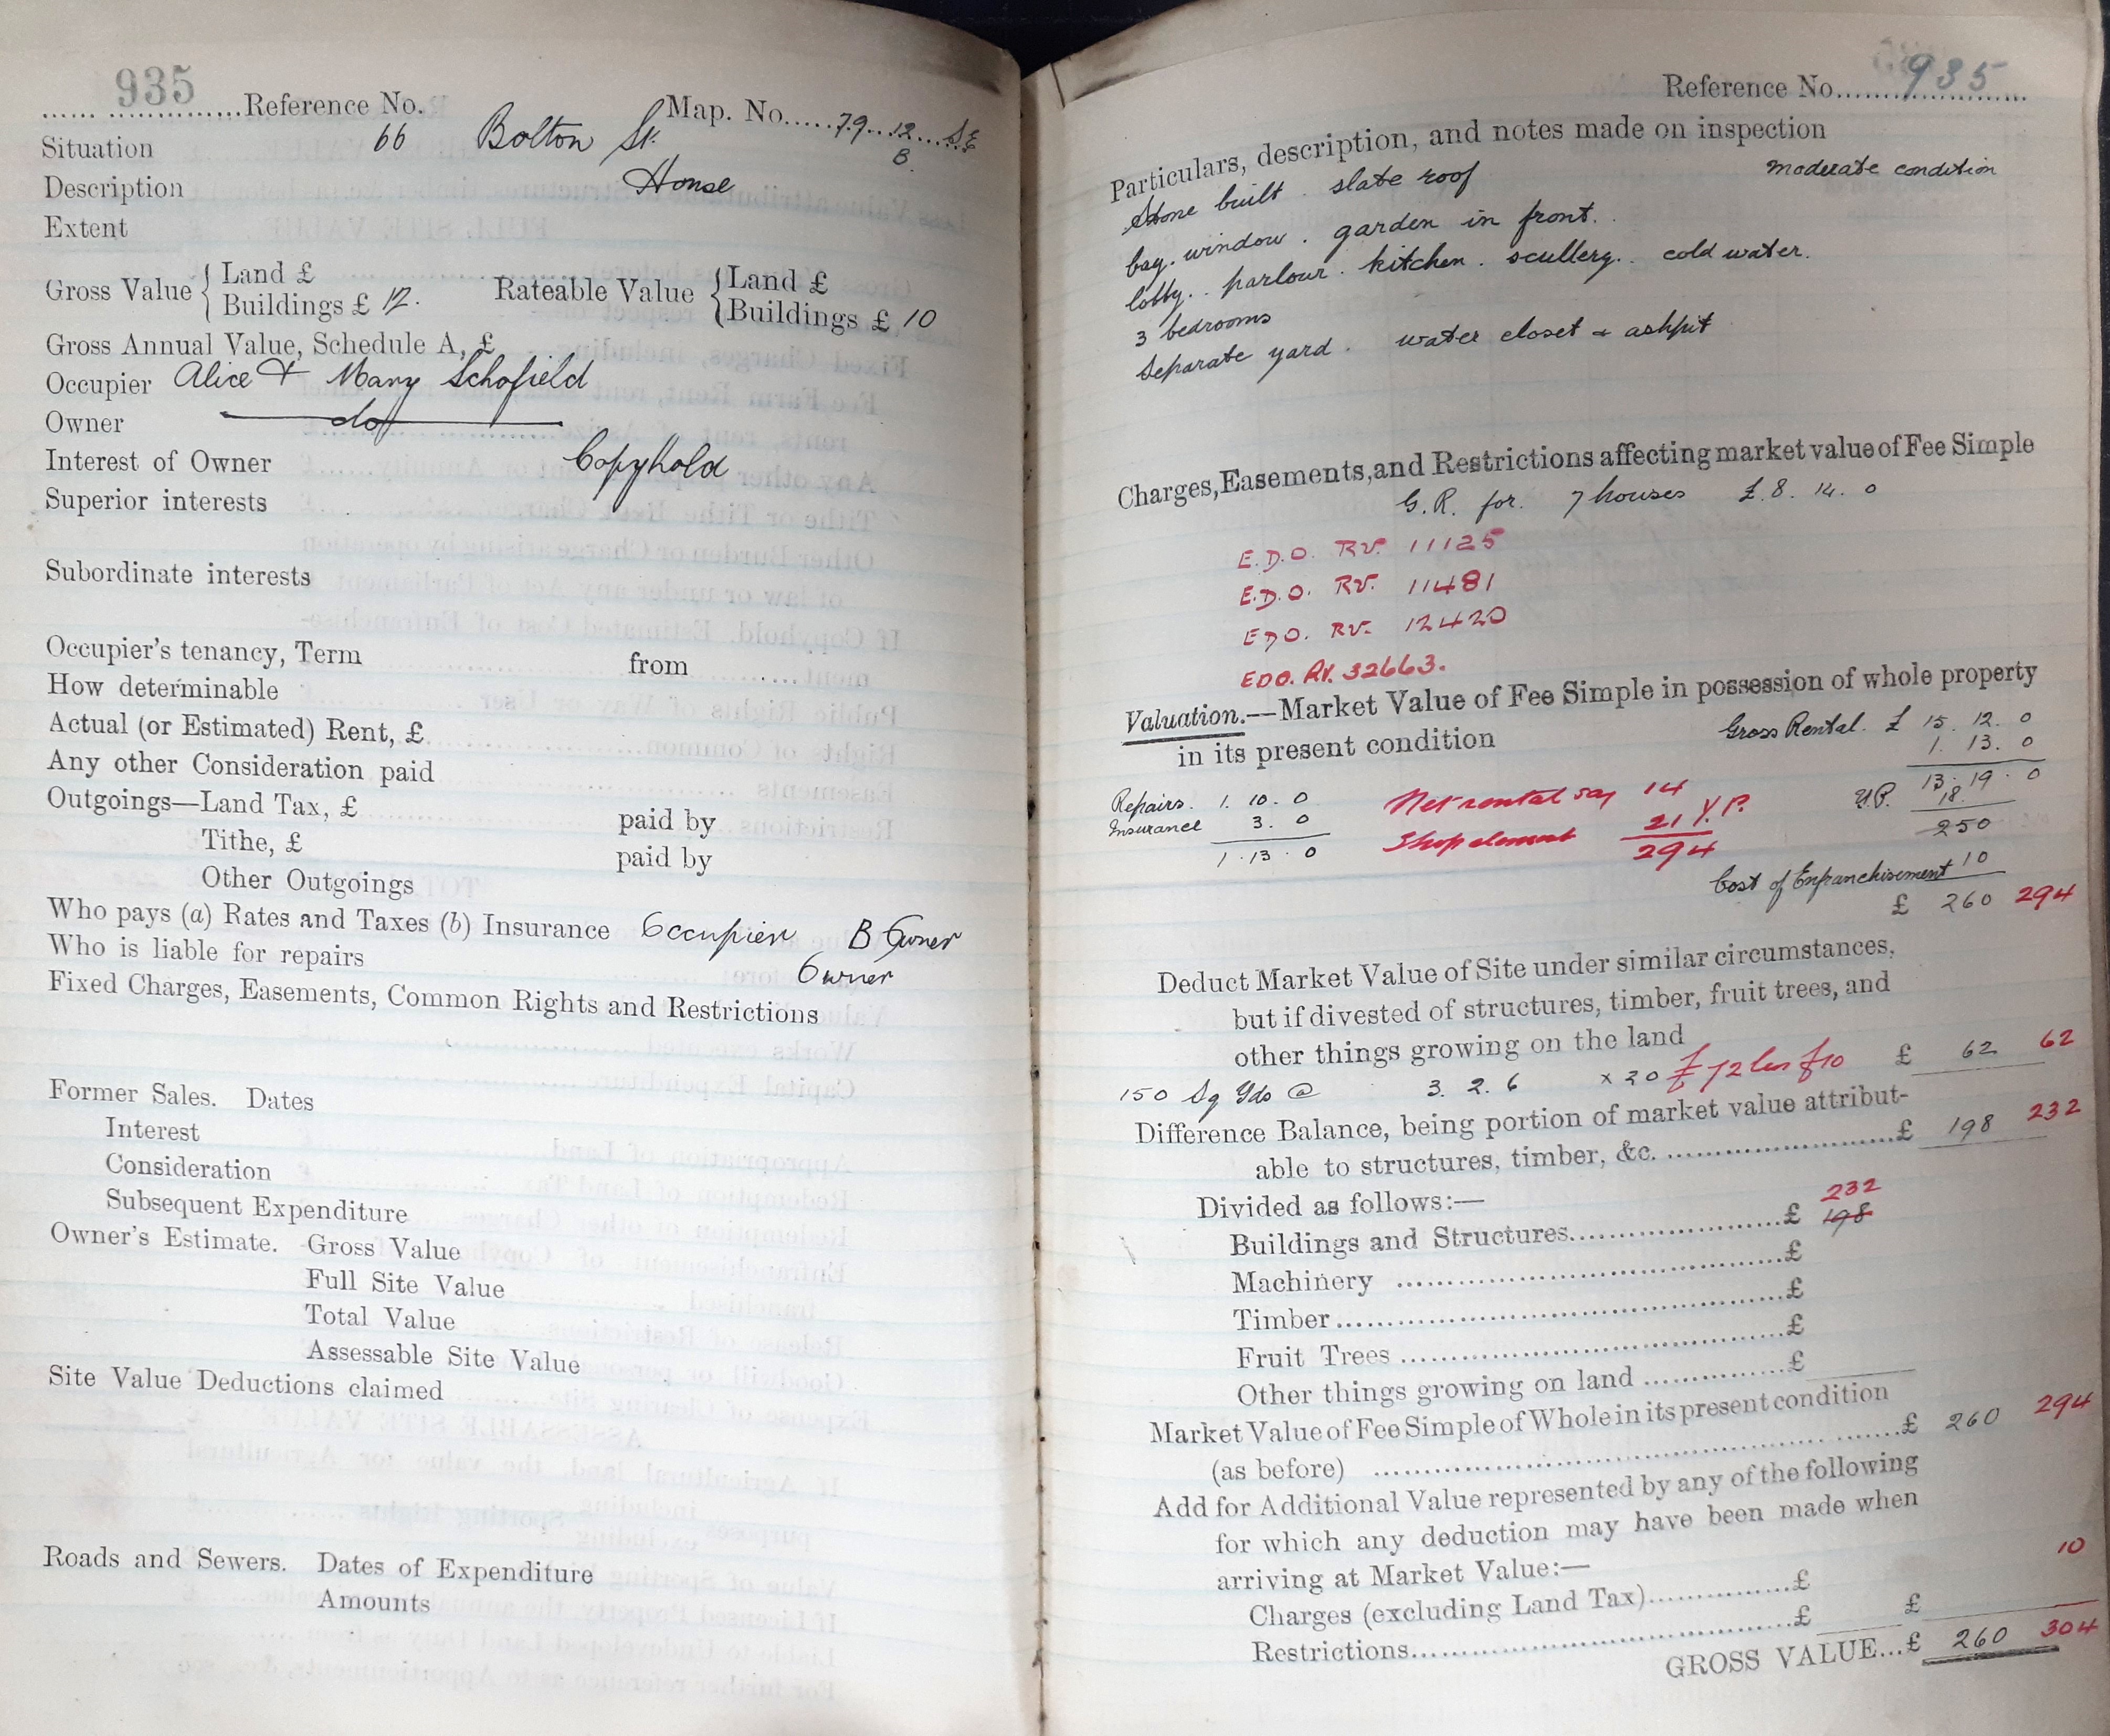 935
Reference No. Map. No. 79. 12 S.E
B.
Situation 66 Bolton St.
Description House
Extent
Gross Value { Land £
Buildings £ 12. Rateable Value { Land £
Buildings £ 10
Gross Annual Value, Schedule A, £
Occupier Alice & Mary Schofield
Owner do
Interest of Owner Copyhold
Superior interests
Subordinate interests
Occupier's tenancy, Term from
How determinable
Actual (or Estimated) Rent, £
Any other Consideration paid
Outgoings—Land Tax, £ paid by
Tithe, £ paid by
Other Outgoings
Who pays (a) Rates and Taxes (b) Insurance Occupier B Owner
Who is liable for repairs Owner
Fixed Charges, Easements, Common Rights and Restrictions
Former Sales. Dates
Interest
Consideration
Subsequent Expenditure
Owner's Estimate. Gross Value
Full Site Value
Total Value
Assessable Site Value
Site Value Deductions claimed
Roads and Sewers. Dates of Expenditure
Amounts
Reference No. 935
Particulars, description, and notes made on inspection
Stone built. slate roof moderate condition
bay. window. garden in front.
lobby. parlour. kitchen. scullery. cold water.
3 bedrooms
Separate yard. water closet & ashpit
Charges, Easements, and Restrictions affecting market value of Fee Simple
G.R. for. 7 houses £.8. 14. 0
E.D.O. RV. 11125
E.D.O. RV. 11481
EDO. RV. 12420
EDO. RV. 32663.
Valuation.—Market Value of Fee Simple in possession of whole property
in its present condition Gross Rental. £ 15. 12. 0
1. 13. 0
Repairs. 1. 10. 0 Net rental say 14 13. 19. 0
Insurance 3. 0 21 Y.P. Y.P. 18.
1. 13. 0 Shop element 294 250
Cost of Enfranchisement 10
£ 260 294
Deduct Market Value of Site under similar circumstances,
but if divested of structures, timber, fruit trees, and
other things growing on the land
150 Sq Yds @ 3. 2. 6 x 20 £72 less £10 £ 62 62
Difference Balance, being portion of market value attribut-
able to structures, timber, &c. £ 198 232
Divided as follows:— 232
Buildings and Structures £ 198
Machinery £
Timber £
Fruit Trees £
Other things growing on land £
Market Value of Fee Simple of Whole in its present condition
(as before) £ 260 294
Add for Additional Value represented by any of the following
for which any deduction may have been made when
arriving at Market Value:— 10
Charges (excluding Land Tax) £
Restrictions £ £
GROSS VALUE...£ 260 304